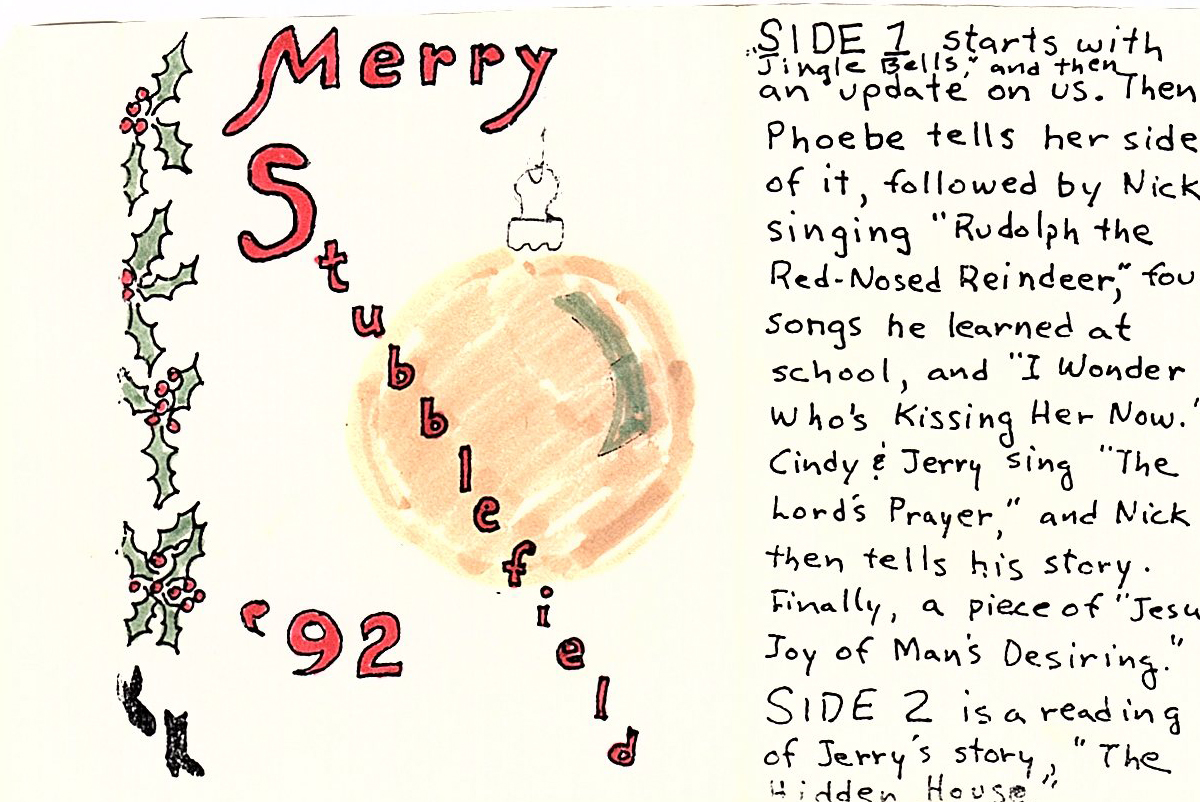 Merry
Stubblefield
'92
SIDE 1 starts with
"Jingle Bells," and then
an update on us. Then
Phoebe tells her side
of it, followed by Nick
singing "Rudolph the
Red-Nosed Reindeer," fou
songs he learned at
school, and "I Wonder
Who's Kissing Her Now."
Cindy & Jerry sing "The
Lord's Prayer," and Nick
then tells his story.
Finally, a piece of "Jesu
Joy of Man's Desiring."
SIDE 2 is a reading
of Jerry's story, "The
Hidden House"